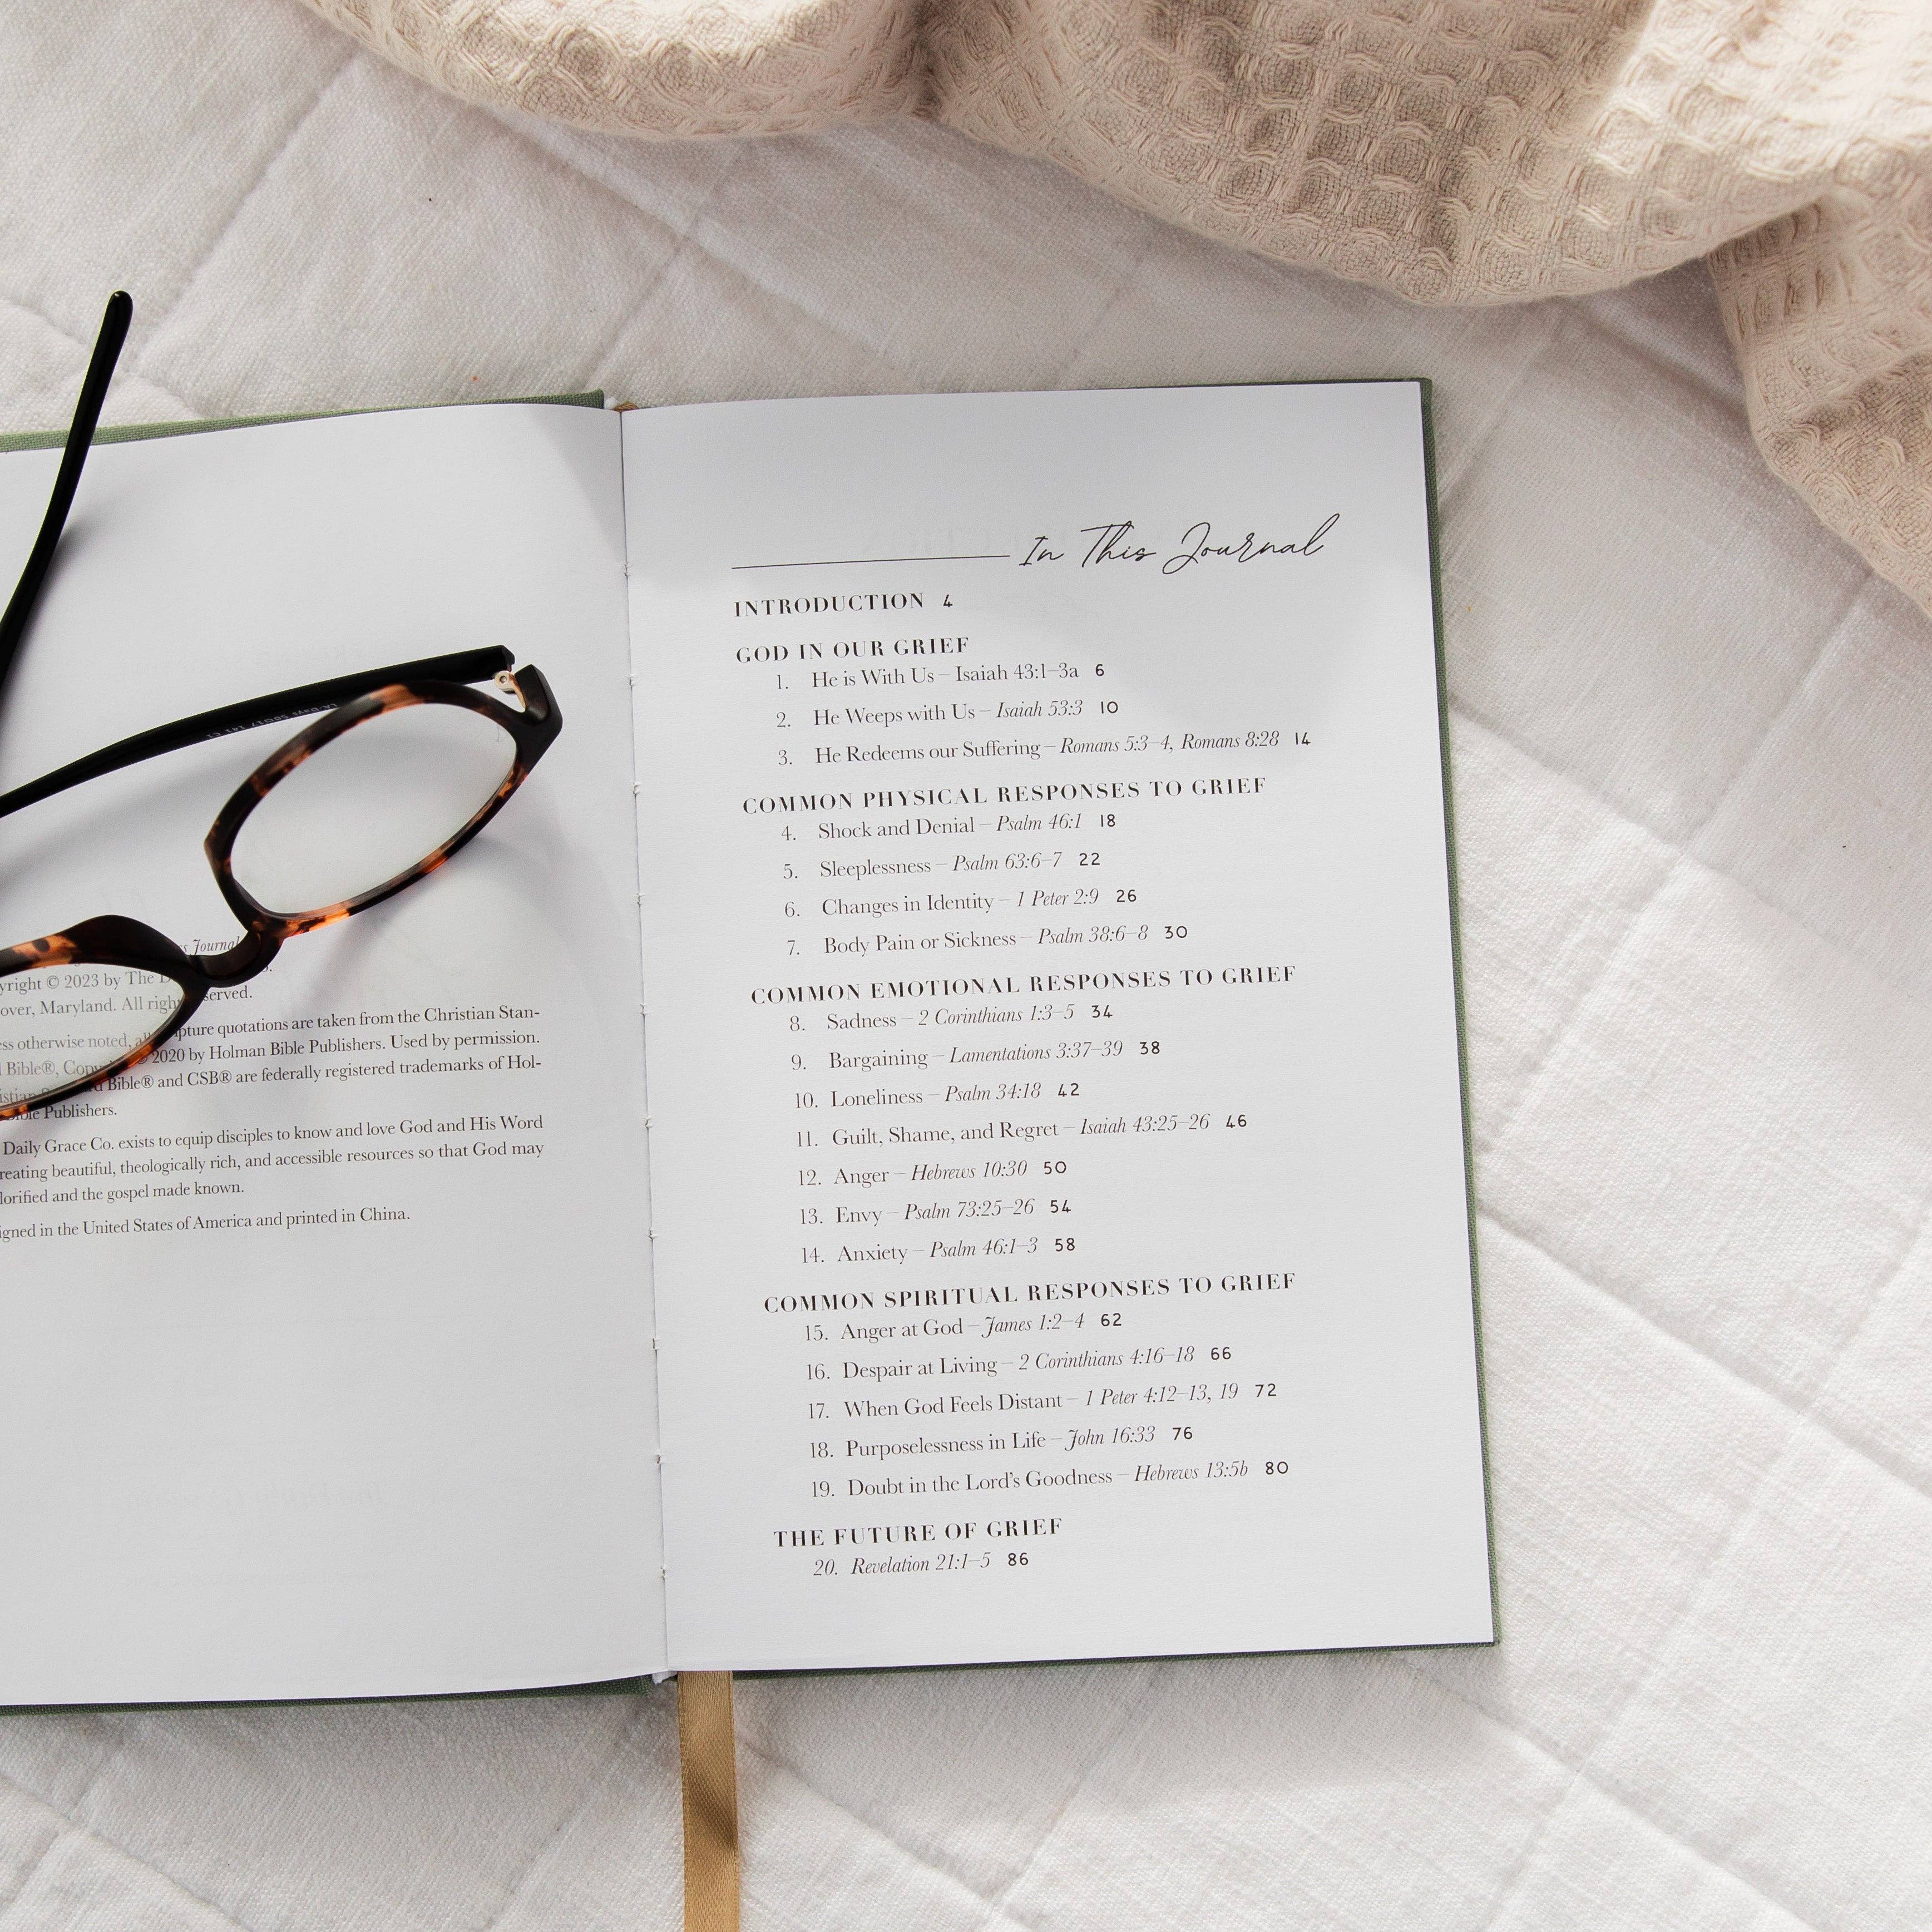 s Journal
yright © 2023 by The D
over, Maryland. All rights served.
ess otherwise noted, all pture quotations are taken from the Christian Stan-
Bible®, Copy 2020 by Holman Bible Publishers. Used by permission.
istian rd Bible® and CSB® are federally registered trademarks of Hol-
Bible Publishers.
Daily Grace Co. exists to equip disciples to know and love God and His Word
reating beautiful, theologically rich, and accessible resources so that God may
lorified and the gospel made known.
igned in the United States of America and printed in China.
In This Journal
INTRODUCTION 4
GOD IN OUR GRIEF
1. He is With Us – Isaiah 43:1–3a 6
2. He Weeps with Us – Isaiah 53:3 10
3. He Redeems our Suffering – Romans 5:3–4, Romans 8:28 14
COMMON PHYSICAL RESPONSES TO GRIEF
4. Shock and Denial – Psalm 46:1 18
5. Sleeplessness – Psalm 63:6–7 22
6. Changes in Identity – 1 Peter 2:9 26
7. Body Pain or Sickness – Psalm 38:6–8 30
COMMON EMOTIONAL RESPONSES TO GRIEF
8. Sadness – 2 Corinthians 1:3–5 34
9. Bargaining – Lamentations 3:37–39 38
10. Loneliness – Psalm 34:18 42
11. Guilt, Shame, and Regret – Isaiah 43:25–26 46
12. Anger – Hebrews 10:30 50
13. Envy – Psalm 73:25–26 54
14. Anxiety – Psalm 46:1–3 58
COMMON SPIRITUAL RESPONSES TO GRIEF
15. Anger at God – James 1:2–4 62
16. Despair at Living – 2 Corinthians 4:16–18 66
17. When God Feels Distant – 1 Peter 4:12–13, 19 72
18. Purposelessness in Life – John 16:33 76
19. Doubt in the Lord's Goodness – Hebrews 13:5b 80
THE FUTURE OF GRIEF
20. Revelation 21:1–5 86